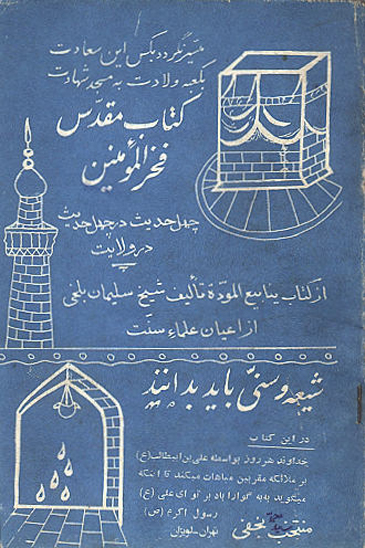 میسر نگردد بکس این سعادت
بکعبه ولادت به مسجد شهادت
کتاب مقدس
فخر المؤمنین
چهل حدیث در چهل حدیث
در ولایت
از کتاب ینابیع المودة تألیف شیخ سلیمان بلخی
از اعیان علماء سنّت
شیعه و سنّی باید بدانند
در این کتاب
خداوند هر روز بواسطه علی بن ابیطالب (ع)
بر ملائکه مقربین مباهات میکند تا اینکه
میگوید به به گوارا باد بر تو ای علی (ع)
رسول اکرم (ص)
تهران-لویزان
نجفی